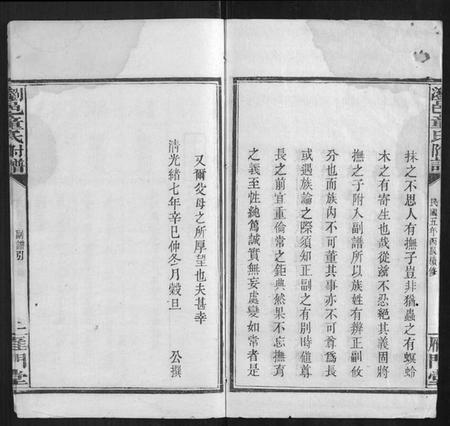 瀏邑童氏附譜
民國五年丙辰續修
雁門堂
抹之不思人有撫子豈非猶蟲之有螟蛉
木之有寄生也哉從茲不忍絕其義固將
撫之子附入副譜所以族姓有辨正副攸
分也而族內不可董其事亦不可尊爲長
或遇族論之際須知正副之有別時值尊
長之前宜重倫常之鉅典然果不忘撫育
之義至性純篤誠實無妄處變如常者是
又爾父母之所厚望也夫甚幸
清光緒七年辛巳仲冬月穀旦
公撰
瀏邑童氏附譜
副譜引
二
雁門堂